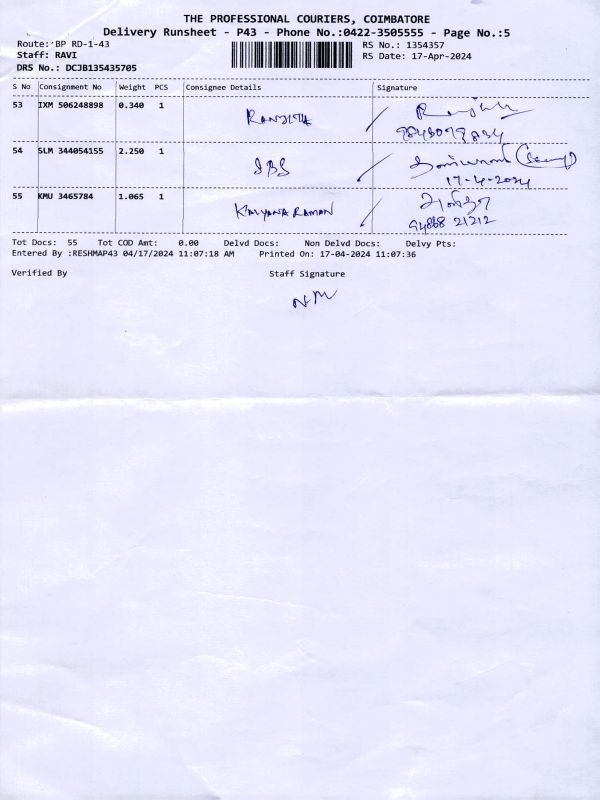 THE PROFESSIONAL COURIERS, COIMBATORE
Delivery Runsheet - P43 - Phone No.:0422-3505555 - Page No.:5
Route: BP RD-1-43 RS No.: 1354357
Staff: RAVI RS Date: 17-Apr-2024
DRS No.: DCJB135435705
S No Consignment No Weight PCS Consignee Details Signature
53 IXM 506248898 0.340 1 RANJITH
54 SLM 344054155 2.250 1 IBS
17-4-2024
55 KMU 3465784 1.065 1 KALYANA RAMAN
94868 21212
Tot Docs: 55 Tot COD Amt: 0.00 Delvd Docs: Non Delvd Docs: Delvy Pts:
Entered By :RESHMAP43 04/17/2024 11:07:18 AM Printed On: 17-04-2024 11:07:36
Verified By Staff Signature
NM